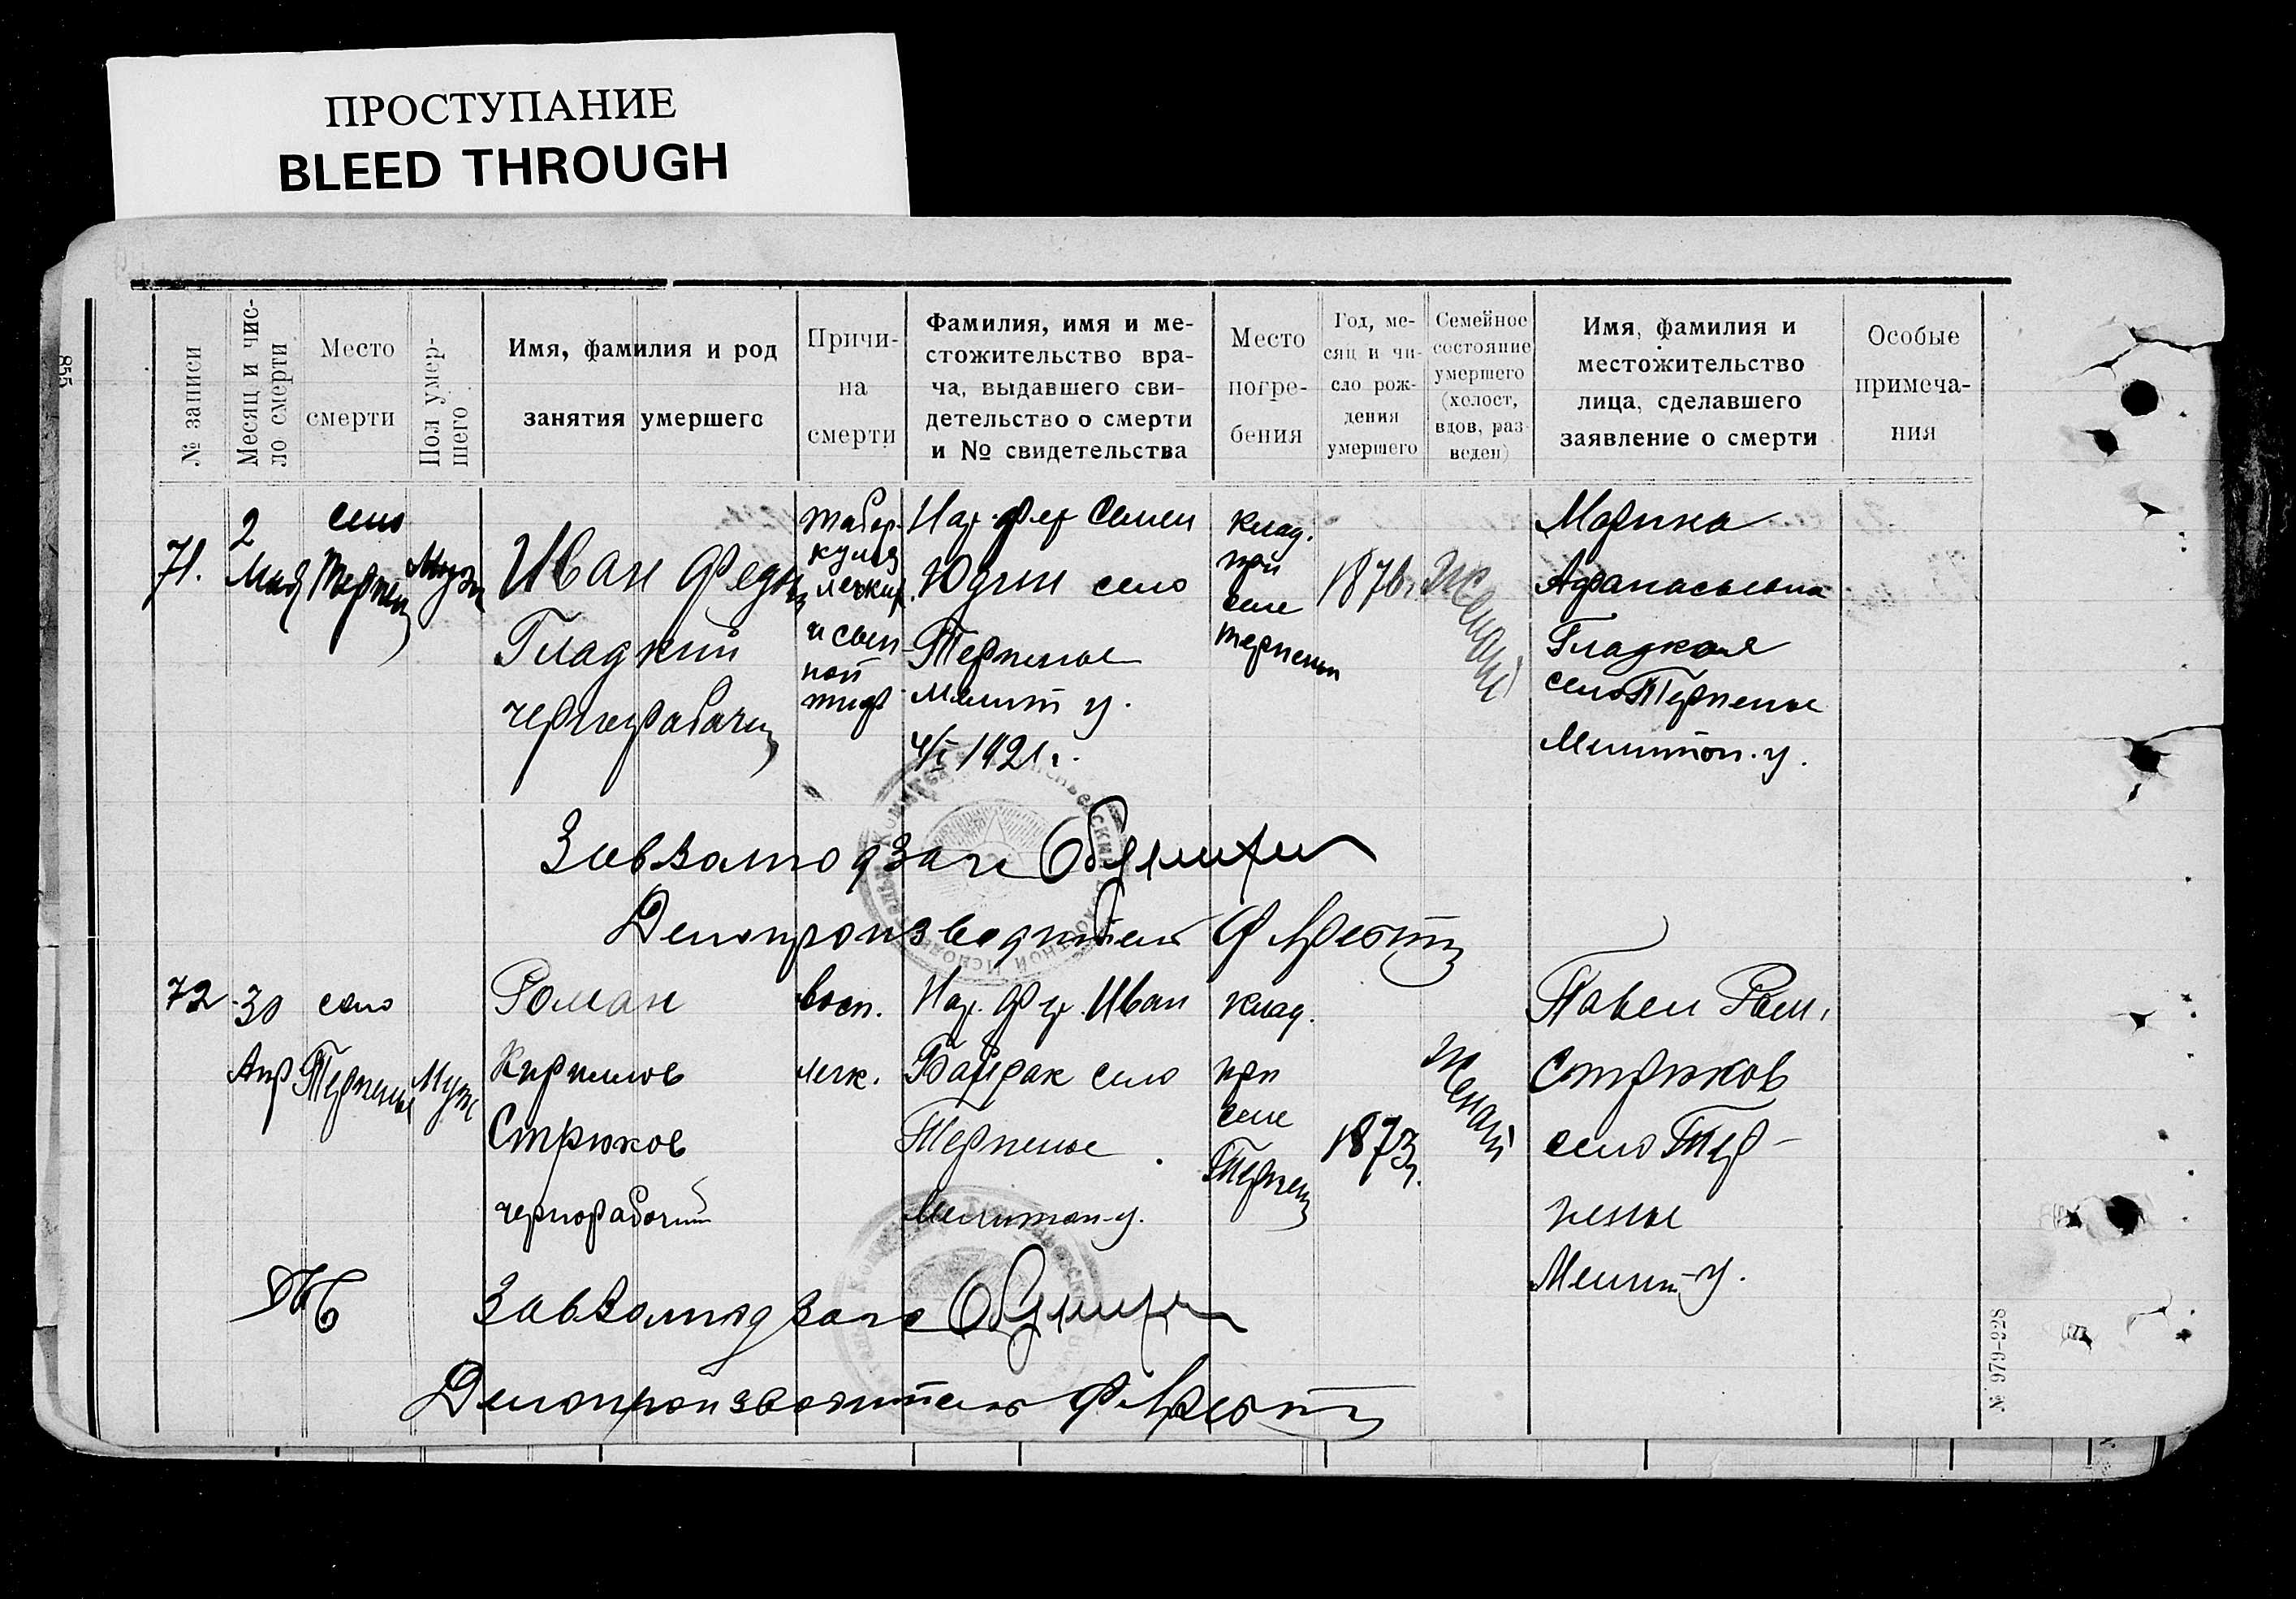 ПРОСТУПАНИЕ
BLEED THROUGH
855
№ записи
Месяц и чис-
ло смерти
Место
смерти
Пол умер-
шего
Имя, фамилия и род
занятия умершего
Причи-
на
смерти
Фамилия, имя и ме-
стожительство вра-
ча, выдавшего сви-
детельство о смерти
и № свидетельства
Место
погре-
бения
Год, ме-
сяц и чи-
сло рож-
дения
умершего
Семейное
состояние
умершего
(холост,
вдов, раз-
веден)
Имя, фамилия и
местожительство
лица, сделавшего
заявление о смерти
Особые
примеча-
ния
71.
2
Мая
село
Терпен
Муж
Иван Федор
Гладкий
чернорабочий
тубер-
кулез
легких
и сып
ной
тиф
Нар. фер Семен
Юдин село
Терпение
Мелит у.
1921 г.
клад.
при
селе
Терпении
1876 г.
Женатый
Марина
Афанасьевна
Гладкая
село Терпение
Мелитоп. у.
Завзаподзаго
Делопроизводитель
72
30
Апр
село
Терпение
Муж
Роман
Кирилов
Стрюков
чернорабочий
восп.
легк.
Нар. фер. Иван
Байрак село
Терпение
Мелитоп. у.
клад.
при
селе
Терпен
1873 г.
Женатый
Павел Ром.
Стрюков
село Тер-
пение
Мелит. у.
Завзаподзаго
Делопроизводитель
№ 979-928